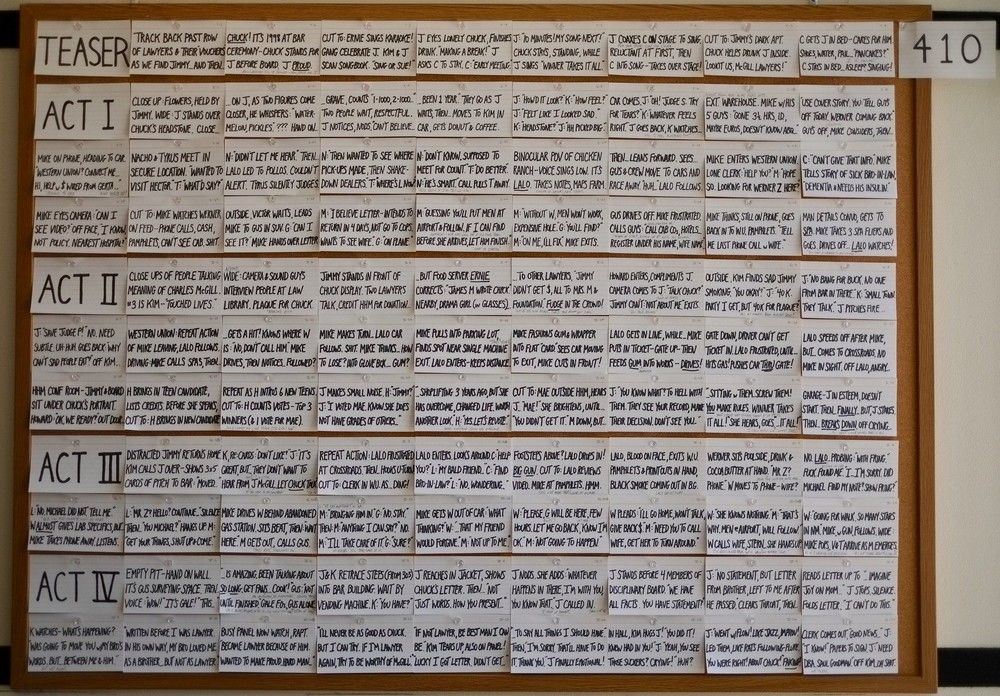 410
TEASER
TRACK BACK PAST ROW
OF LAWYERS & THEIR VOUCHERS
AS WE FIND JIMMY. AND THEN
CHUCK! IT'S 1998 AT BAR
CEREMONY-CHUCK STANDS FOR
J BEFORE BOARD. J PROUD.
CUT TO: ERNIE SINGS KARAOKE!
GANG CELEBRATE J. KIM & J
SCAN SONGBOOK. "SING OR SUE!"
J EYES LONELY CHUCK, FINISHES
DRINK. "MAKING A BREAK!" J
ASKS C TO STAY. C: "EARLY MEETING"
J: "10 MINUTES! MY SONG NEXT!"
CHUCK STAYS, STANDING, WHILE
J SINGS "WINNER TAKES IT ALL"
J COAXES C ON STAGE TO SING.
RELUCTANT AT FIRST, THEN
C INTO SONG--TAKES OVER STAGE!
CUT TO: JIMMY'S DARK APT.
CHUCK HELPS DRUNK J INSIDE.
"LOOKIT US, MCGILL LAWYERS!"
C GETS J IN BED-CARES FOR HIM.
SHOES, WATER, PAIL. "PANCAKES?"
C STAYS IN BED...ASLEEP? SINGING!
ACT I
CLOSE UP: FLOWERS, HELD BY
JIMMY. WIDE: J STANDS OVER
CHUCK'S HEADSTONE. CLOSE
...ON J, AS TWO FIGURES COME
CLOSER, HE WHISPERS: "WATER-
MELON, PICKLES" ??? HAND ON
...GRAVE, COUNTS "1-1000, 2-1000.."
TWO PEOPLE WANT, RESPECTFUL.
J NOTICES, NODS, CAN'T BELIEVE
...BEEN 1 YEAR" THEY GO AS J
WAITS, THEN MOVES TO KIM IN
CAR, GETS DONUT & COFFEE.
J: "HOW'D IT LOOK?" K: "HOW FEEL?"
J: "FELT LIKE I LOOKED SAD."
K: "HEADSTONE?" J: "HH PICKED BIG."
CAR COMES, J: "OH! JUDGE S. TRY
FOR TEARS?" K: "WHATEVER FEELS
RIGHT." J GOES BACK, K WATCHES..
EXT WAREHOUSE. MIKE W/ HIS
5 GUYS: "GONE 3½ HRS, ID,
MAYBE EUROS, DOESN'T KNOW AREA
USE COVER STORY. YOU TELL GUYS
OFF TODAY. WERNER COMING BACK."
GUYS OFF, MIKE CONSIDERS, THEN...
MIKE ON PHONE, HEADING TO CAR.
"WESTERN UNION? CONNECT ME...
HI, HELP W $ WIRED FROM GERTA...
NACHO & TYRUS MEET IN
SECURE LOCATION. "WANTED TO
VISIT HECTOR." T: "WHAT'D SAY?"
N: "DIDN'T LET ME HEAR." THEN
LALO LED TO POLLOS. COULDN'T
ALERT. TYRUS SILENTLY JUDGES
N: "THEN WANTED TO SEE WHERE
PICK-UPS MADE, THEN SHAKE-
DOWN DEALERS." T: "WHERE'S L NOW?"
N: "DON'T KNOW, SUPPOSED TO
MEET FOR COUNT." T: "DO BETTER."
N: "HE'S SMART." CALL PULLS T AWAY.
BINOCULAR POV OF CHICKEN
RANCH-VOICE SINGS LOW. IT'S
LALO. TAKES NOTES, MAPS FARM
THEN... LEANS FORWARD. SEES..
GUS & CREW MOVE TO CARS AND
RACE AWAY. "HUH." LALO FOLLOWS.
MIKE ENTERS WESTERN UNION.
LONE CLERK: "HELP YOU?" M: "HOPE
SO. LOOKING FOR WERNER Z HERE?"
C: "CAN'T GIVE THAT INFO." MIKE
TELLS STORY OF SICK BRO-IN-LAW,
"DEMENTIA & NEEDS HIS INSULIN."
MIKE EYES CAMERA: "CAN I
SEE VIDEO?" "OFF FACE, I KNOW
NOT POLICY. NEAREST HOSPITAL?"
CUT TO: MIKE WATCHES WERNER
ON FEED-PHONE CALLS, CASH,
PAMPHLETS, CAN'T SEE CAB. SHIT.
OUTSIDE, VICTOR WAITS, LEADS
MIKE TO GUS IN SUV. G: "CAN I
SEE IT?" MIKE HANDS OVER LETTER
M: "I BELIEVE LETTER-INTENDS TO
RETURN IN 4 DAYS, NOT GO TO COPS.
WANTS TO SEE WIFE." G: "ON PLANE
M: "GUESSING YOU'LL PUT MEN AT
AIRPORT & FOLLOW. IF I CAN FIND
BEFORE SHE ARRIVES, LET HIM FINISH."
M: "WITHOUT W, MEN WON'T WORK,
EXPENSIVE HOLE. G: "YOU'LL FIND?"
M: "ON ME, I'LL FIX." MIKE EXITS.
GUS DRIVES OFF. MIKE FRUSTRATED.
CALLS GUYS: "CALL CAB COS, HOTELS...
REGISTER UNDER HIS NAME, WIFE NAME
MIKE THINKS, STILL ON PHONE, GOES
BACK IN TO W.U. PAMPHLETS. "TELL
ME LAST PHONE CALL W WIFE."
MAN DETAILS CONVO, GETS TO
SPA. MIKE TAKES 3 SPA FLIERS AND
GOES. DRIVES OFF... LALO WATCHES!
ACT II
CLOSE UPS OF PEOPLE TALKING
MEANING OF CHARLES MCGILL.
#3 IS KIM-"TOUCHED LIVES."
WIDE: CAMERA & SOUND GUYS
INTERVIEW PEOPLE AT LAW
LIBRARY. PLAQUE FOR CHUCK.
JIMMY STANDS IN FRONT OF
CHUCK DISPLAY. TWO LAWYERS
TALK, CREDIT HHM FOR DONATION.
BUT FOOD SERVER ERNIE
CORRECTS: "JAMES M WROTE CHECK"
NEARBY, DRAMA GIRL (W GLASSES),
...TO OTHER LAWYERS. "JIMMY
DIDN'T GET $, ALL TO MRS. M &
FOUNDATION. FUDGE IN THE CROWD!
HOWARD ENTERS, COMPLIMENTS J.
CAMERA COMES TO J: "TALK CHUCK?"
JIMMY: CAN'T-NOT ABOUT ME." EXITS.
OUTSIDE, KIM FINDS SAD JIMMY
SMOKING. "YOU OKAY?" J: "40K.
PARTY I GET, BUT 40K FOR PLAQUE?
J: "NO BANG FOR BUCK, NO ONE
FROM BAR IN THERE" K: "SMALL TOWN
THEY TALK." J PITCHES FIRE...
J: "SAVE JUDGE P!" "NO. NEED
SUBTLE. UH HUH. GOES BACK "WHY
CAN'T SAD PEOPLE EAT?" OFF KIM.
WESTERN UNION: REPEAT ACTION
OF MIKE LEAVING, LALO FOLLOWS.
DRIVING-MIKE CALLS SPAS, THEN
...GETS A HIT! KNOWS WHERE W
IS: "NO, DON'T CALL HIM." MIKE
DRIVES, THEN NOTICES. FOLLOWED?
MIKE MAKES TURN...LALO CAR
FOLLOWS SUIT. MIKE THINKS..HOW
TO LOSE? INTO GLOVE BOX... GUM?
MIKE PULLS INTO PARKING LOT,
FINDS SPOT NEAR SINGLE MACHINE
EXIT. LALO ENTERS-KEEPS DISTANCE
MIKE FASHIONS GUM & WRAPPER
INTO FLAT "CARD" SEES CAR MOVING
TO EXIT, MIKE CUTS IN FRONT!
LALO GETS IN LINE, WHILE.. MIKE
PUTS IN TICKET-GATE UP-THEN
FEEDS GUM INTO WORKS-DRIVES!
GATE DOWN, DRIVER CAN'T GET
TICKET IN. LALO FRUSTRATED, UNTIL...
HITS GAS, PUSHES CAR THRU GATE!
LALO SPEEDS OFF AFTER MIKE,
BUT... COMES TO CROSSROADS. NO
MIKE IN SIGHT. OFF LALO, ANGRY.
HHM CONF ROOM-JIMMY & BOARD
SIT UNDER CHUCK'S PORTRAIT.
HOWARD: "OK, WE READY?" OUT DOOR.
H BRINGS IN TEEN CANDIDATE,
LISTS CREDITS. BEFORE SHE SPEAKS,
CUT TO: H BRINGS IN NEW CANDIDATE
REPEAT AS H INTROS & NEW TEENS.
CUT TO: H COUNTS VOTES-TOP 3
WINNERS (& 1 VOTE FOR MAE).
J MAKES SMALL NOISE. H: "JIMMY?"
J: "I VOTED MAE. KNOW SHE DOES
NOT HAVE GRADES OF OTHERS."
...SHOPLIFTING 3 YEARS AGO, BUT SHE
HAS OVERCOME, CHANGED LIFE, WORTH
ANOTHER LOOK." H: "YES, LET'S REVOTE."
CUT TO: MAE OUTSIDE HHM, HEARS
J: "MAE!" SHE BRIGHTENS, UNTIL...
"YOU DIDN'T GET IT." M DOWN, BUT
J: "YOU KNOW WHAT? TO HELL WITH
THEM. THEY SEE YOUR RECORD, MAKE
THEIR DECISION. DON'T SEE YOU."
"SITTING W THEM. SCREW THEM!
YOU MAKE RULES. WINNER TAKES
IT ALL! SHE HEARS, GOES. "..IT ALL!"
GARAGE-J IN ESTEEM, DOESN'T
START. THEN, FINALLY, BUT J STARTS,
THEN.. BREAKS DOWN OFF CRYING.
ACT III
DISTRACTED JIMMY RETURNS HOME.
KIM CALLS J OVER-SHOWS 3x5
CARDS OF PITCH TO BAR-MOVED.
K RE: CARDS. "DON'T LIKE?" J: "IT'S
GREAT, BUT THEY DON'T WANT TO
HEAR FROM J. MCGILL. LET CHUCK TALK
REPEAT ACTION: LALO FRUSTRATED
AT CROSSROADS. THEN, HOOKS U-TURN
CUT TO: CLERK IN W.U. AS...DING!
LALO ENTERS, LOOKS AROUND. C: "HELP
YOU?" L: "MY BALD FRIEND." C: "FIND
BRO-IN-LAW?" L: "NO, WONDERING..
FOOTSTEPS ABOVE! LALO DRIVES IN!
BIG GUN. CUT TO: LALO REVIEWS
VIDEO. MIKE AT PAMPHLETS. HMM.
LALO, BLOOD ON FACE, EXITS W.U.
PAMPHLETS & PRINTOUTS IN HAND,
BLACK SMOKE COMING OUT IN BG.
WERNER SITS POOLSIDE, DRUNK &
COCOABUTTER AT HAND. "MR. Z?
PHONE" W MOVES TO PHONE-WIFE?
NO. LALO. PROBING-"WITH FRING"
FUCK FOUND ME! "I...I'M SORRY. DID
MICHAEL FIND MY NOTE? SHOW FRING?
L: "NO. MICHAEL DID NOT TELL ME."
W ALMOST GIVES LAB SPECIFICS, BUT
MIKE TAKES PHONE AWAY, LISTENS.
L: "MR. Z? HELLO? CONTINUE." SILENCE.
THEN, "YOU, MICHAEL?" HANGS UP. M:
"GET YOUR THINGS, SHUT UP & COME."
MIKE DRIVES W BEHIND ABANDONED
GAS STATION. SITS BEAT, THEN "WAIT
HERE." M GETS OUT, CALLS GUS.
M: "BRINGING HIM IN." G: "NO. STAY."
THEN-M: "ANYTHING I CAN SAY?" "NO."
M: "I'LL TAKE CARE OF IT." G: "SURE?"
MIKE GETS OUT OF CAR. "WHAT
THINKING?" W: "...THAT MY FRIEND
WOULD FORGIVE." M: "NOT UP TO ME."
W: "PLEASE, G WILL BE HERE, FEW
HOURS. LET ME GO BACK, KNOW I'M
OK." M: "NOT GOING TO HAPPEN."
W PLEADS: "I'LL GO HOME, WON'T TALK,
GIVE BACK $." M: "NEED YOU TO CALL
WIFE, GET HER TO TURN AROUND."
W: "SHE KNOWS NOTHING." M: "THAT'S
WHY. MEN @ AIRPORT, WILL FOLLOW."
W CALLS WIFE, STERN, SHE HANGS UP
W: "GOING FOR WALK, SO MANY STARS
IN NM. MIKE W GUN, FOLLOWS. WIDE:
MIKE POPS, W OT ARRIVE AS M EMERGES
ACT IV
EMPTY PIT-HAND ON WALL.
IT'S GUS SURVEYING SPACE. THEN
VOICE: "WOW!" IT'S GALE! "THIS..
...IS AMAZING. BEEN TALKING ABOUT
SO LONG. GET PANS... COOK." GUS: "NOT
UNTIL FINISHED." GALE FOX, GUS ALONE.
J & K RETRACE STEPS (FROM 305)
INTO BAR BUILDING. WAIT BY
VENDING MACHINE. K: "YOU HAVE?"
J REACHES IN JACKET, SHOWS
CHUCK'S LETTER. THEN.. "NOT
JUST WORDS, HOW YOU PRESENT..
J NODS. SHE ADDS: "WHATEVER
HAPPENS IN THERE, I'M WITH YOU.
YOU KNOW THAT." J CALLED IN.
J STANDS BEFORE 4 MEMBERS OF
DISCIPLINARY BOARD. "WE HAVE
ALL FACTS. YOU HAVE STATEMENT?
J: "NO STATEMENT, BUT LETTER
FROM BROTHER, LEFT TO ME AFTER
HE PASSED. CLEARS THROAT, THEN..
READS LETTER UP TO "...IMAGINE
JOY ON MOM..." J STOPS. SILENCE.
FOLDS LETTER, "I CAN'T DO THIS."
K WATCHES-WHAT'S HAPPENING?
"WAS GOING TO MOVE YOU W/ BRO'S
WORDS. BUT... BETWEEN ME & HIM.
WRITTEN BEFORE I WAS LAWYER
IN HIS OWN WAY, MY BRO LOVED ME
AS A BROTHER, BUT NOT AS LAWYER
BUSY PANEL NOW WATCH, RAPT.
BECAME LAWYER BECAUSE OF HIM.
WANTED TO MAKE PROUD. HARD MAN.
"I'LL NEVER BE AS GOOD AS CHUCK,
BUT I CAN TRY. IF I'M LAWYER
AGAIN, TRY TO BE WORTHY OF MCGILL
"IF NOT LAWYER, BE BEST MAN I CAN
BE." KIM TEARS UP, ALSO ON PANEL!
"LUCKY I GOT LETTER. DIDN'T GET..
"..TO SAY ALL THINGS I SHOULD HAVE.
THEN, "I'M SORRY, THAT'D HAVE TO DO
IT. THANK YOU." J FINALLY EMOTIONAL!
IN HALL, KIM HUGS J! "YOU DID IT!
KNOW HAD IN YOU!" J: "YEAH, YOU SEE
THOSE SUCKERS? CRYING!" "HUH?"
J: "WENT W/ FLOW! LIKE JAZZ, MAN!
LED THEM, LIKE RATS FOLLOWING FLUTE.
YOU WERE RIGHT! ABOUT CHUCK."
CLERK COMES OUT "GOOD NEWS." J:
"I KNOW! PAPERS TO SIGN." J: "NEED
DBA. SAUL GOODMAN." OFF KIM, OH SHIT.